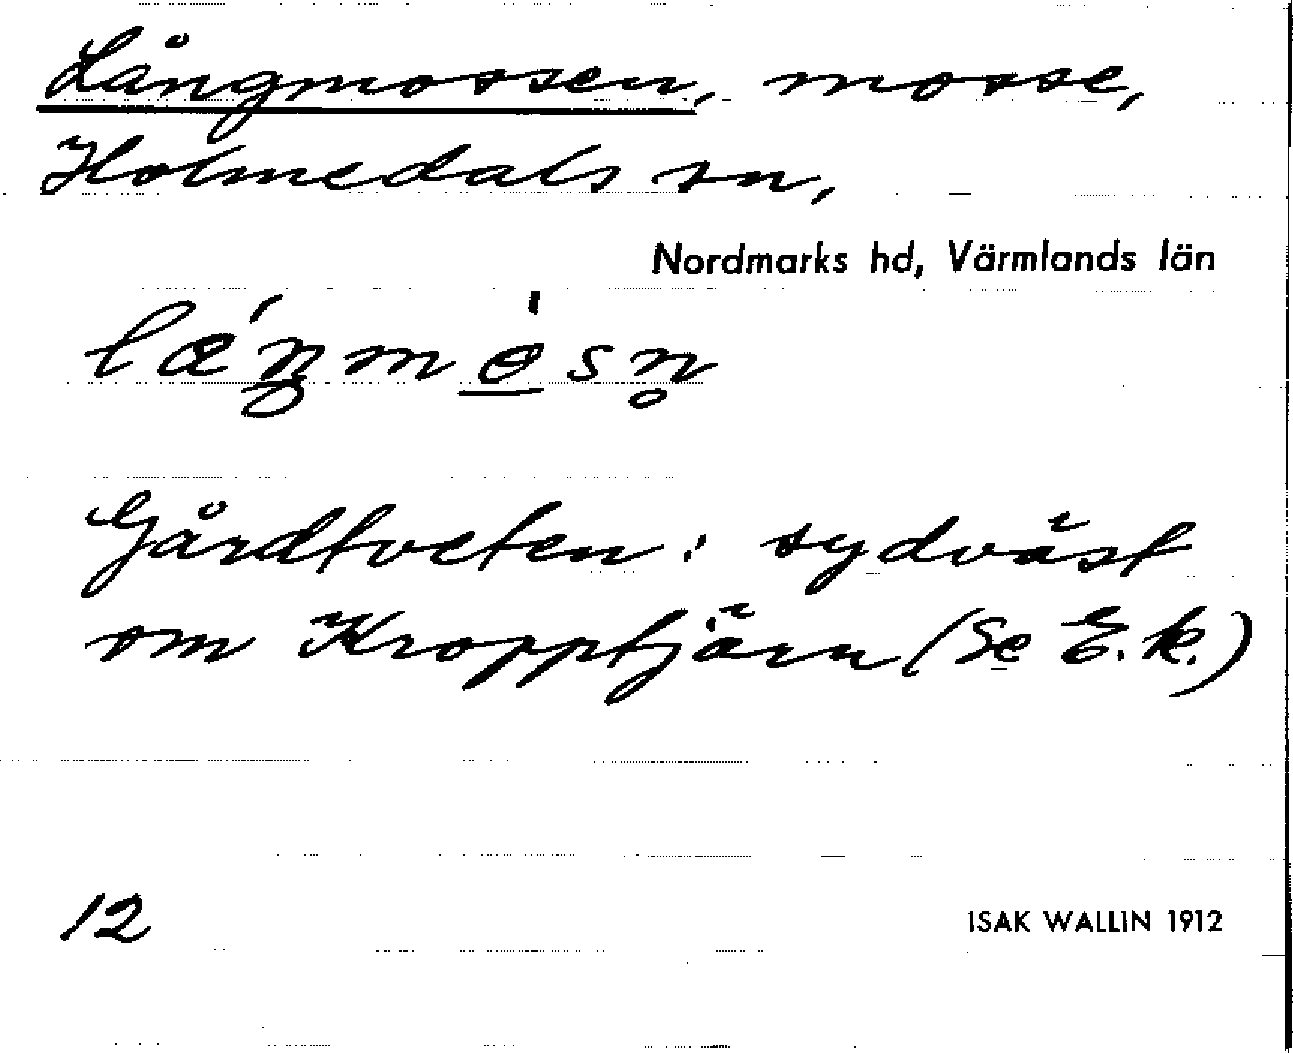 Långmossen, mosse,
Holmedals sn,
Nordmarks hd, Värmlands län
Gårdtveten: sydväst
om Kropptjärn (Se E.k.)
12
ISAK WALLIN 1912